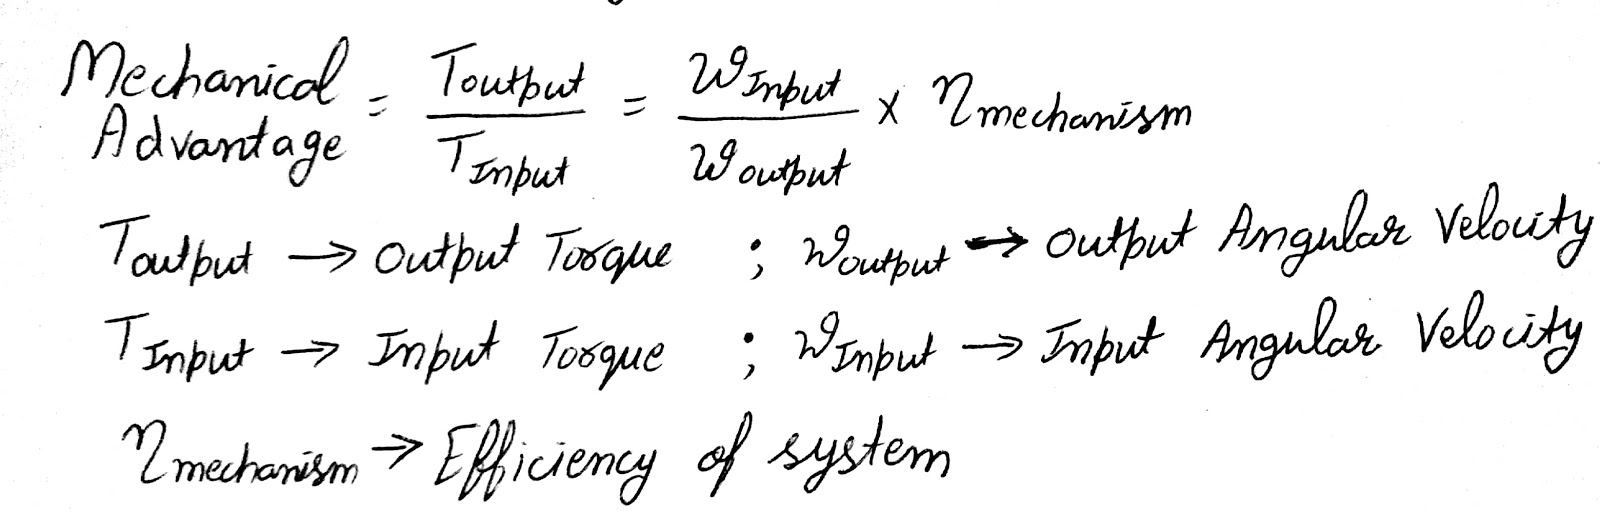 Mechanical Advantage = Toutput / TInput = ωInput / ωoutput × ηmechanism
Toutput → Output Torque ; ωoutput → Output Angular Velocity
TInput → Input Torque ; ωInput → Input Angular Velocity
ηmechanism → Efficiency of system